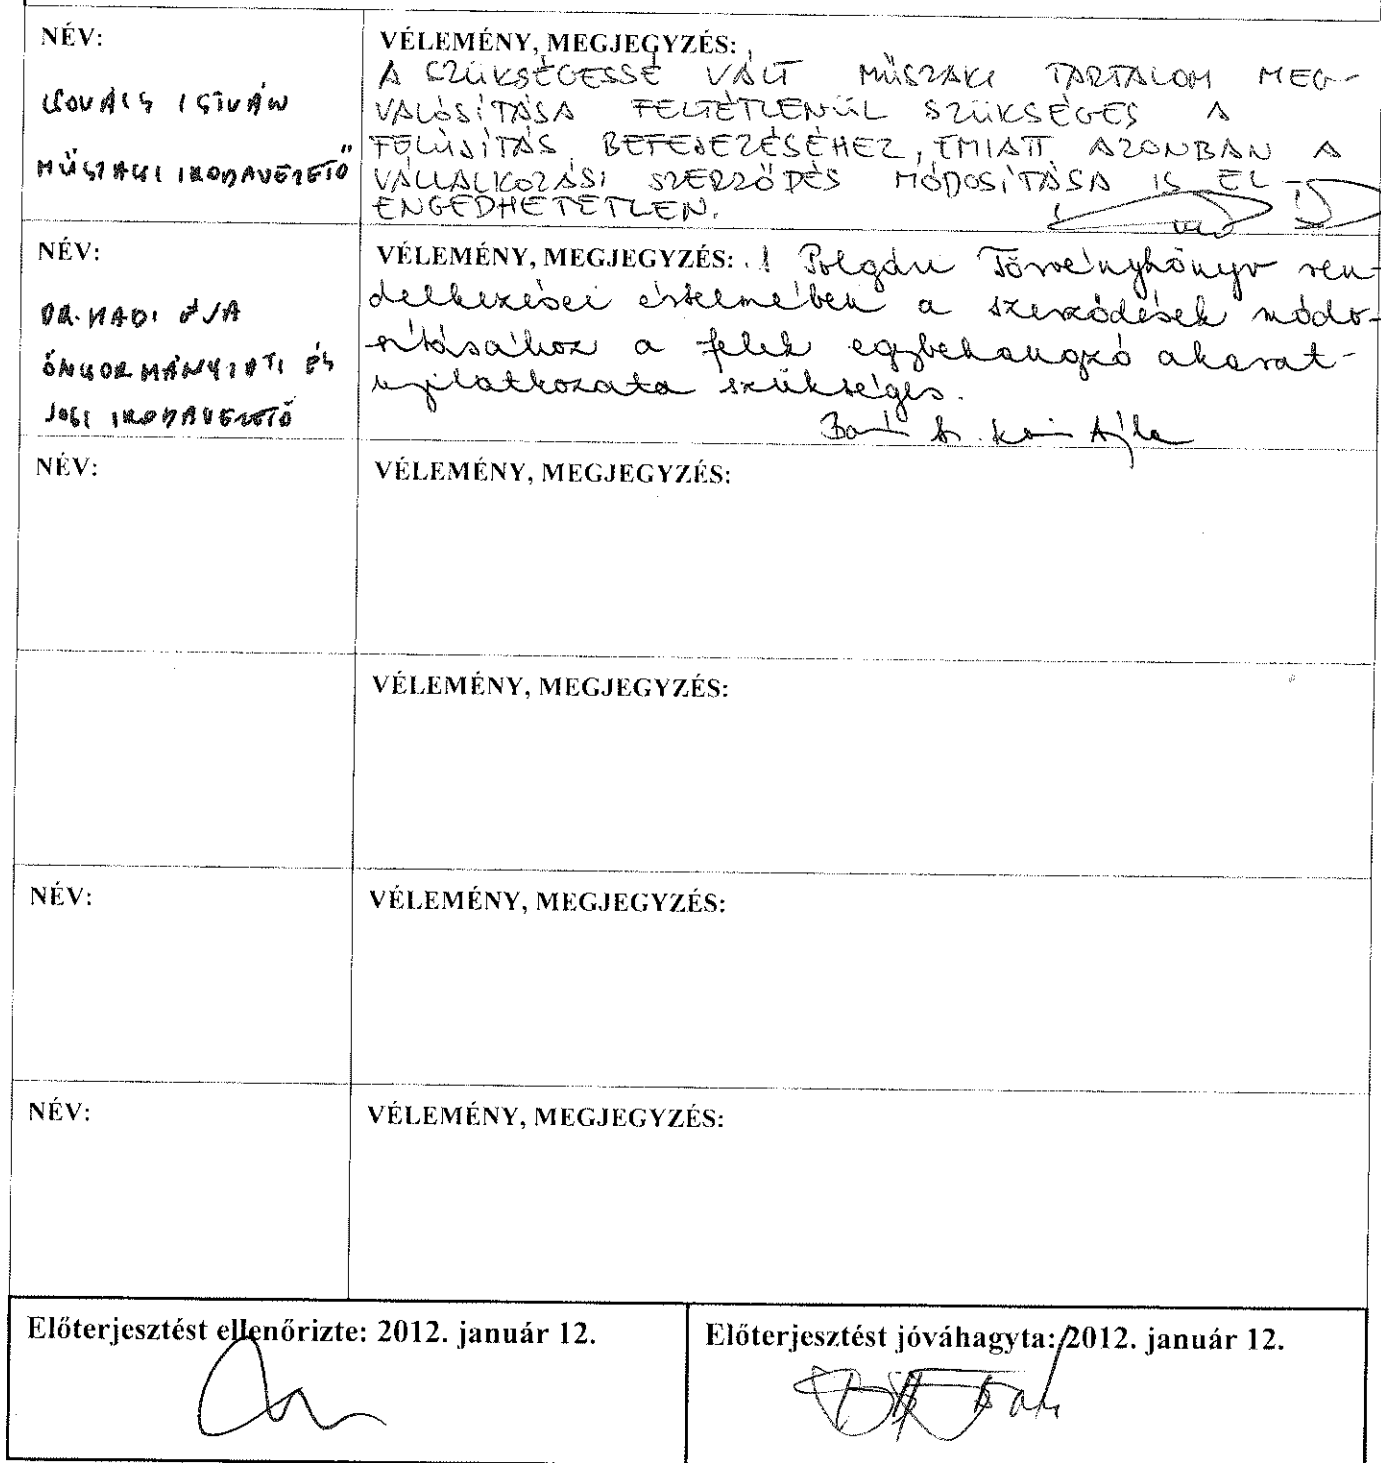 NÉV:
KOVÁCS ISTVÁN
MŰSZAKI IRODAVEZETŐ
VÉLEMÉNY, MEGJEGYZÉS:
A SZÜKSÉGESSÉ VÁLT MŰSZAKI TARTALOM MEG-
VALÓSÍTÁSA FELTÉTLENÜL SZÜKSÉGES A
FELÚJÍTÁS BEFEJEZÉSÉHEZ, EMIATT AZONBAN A
VÁLLALKOZÁSI SZERZŐDÉS MÓDOSÍTÁSA IS EL-
ENGEDHETETLEN.
NÉV:
DR. HADI ÉVA
ÖNKORMÁNYZATI ÉS
JOGI IRODAVEZETŐ
VÉLEMÉNY, MEGJEGYZÉS: A Polgári Törvénykönyv ren-
delkezései értelmében a szerződések módo-
sításához a felek egybehangzó akarat-
nyilatkozata szükséges.
NÉV:
VÉLEMÉNY, MEGJEGYZÉS:
VÉLEMÉNY, MEGJEGYZÉS:
NÉV:
VÉLEMÉNY, MEGJEGYZÉS:
NÉV:
VÉLEMÉNY, MEGJEGYZÉS:
Előterjesztést ellenőrizte: 2012. január 12.
Előterjesztést jóváhagyta: 2012. január 12.